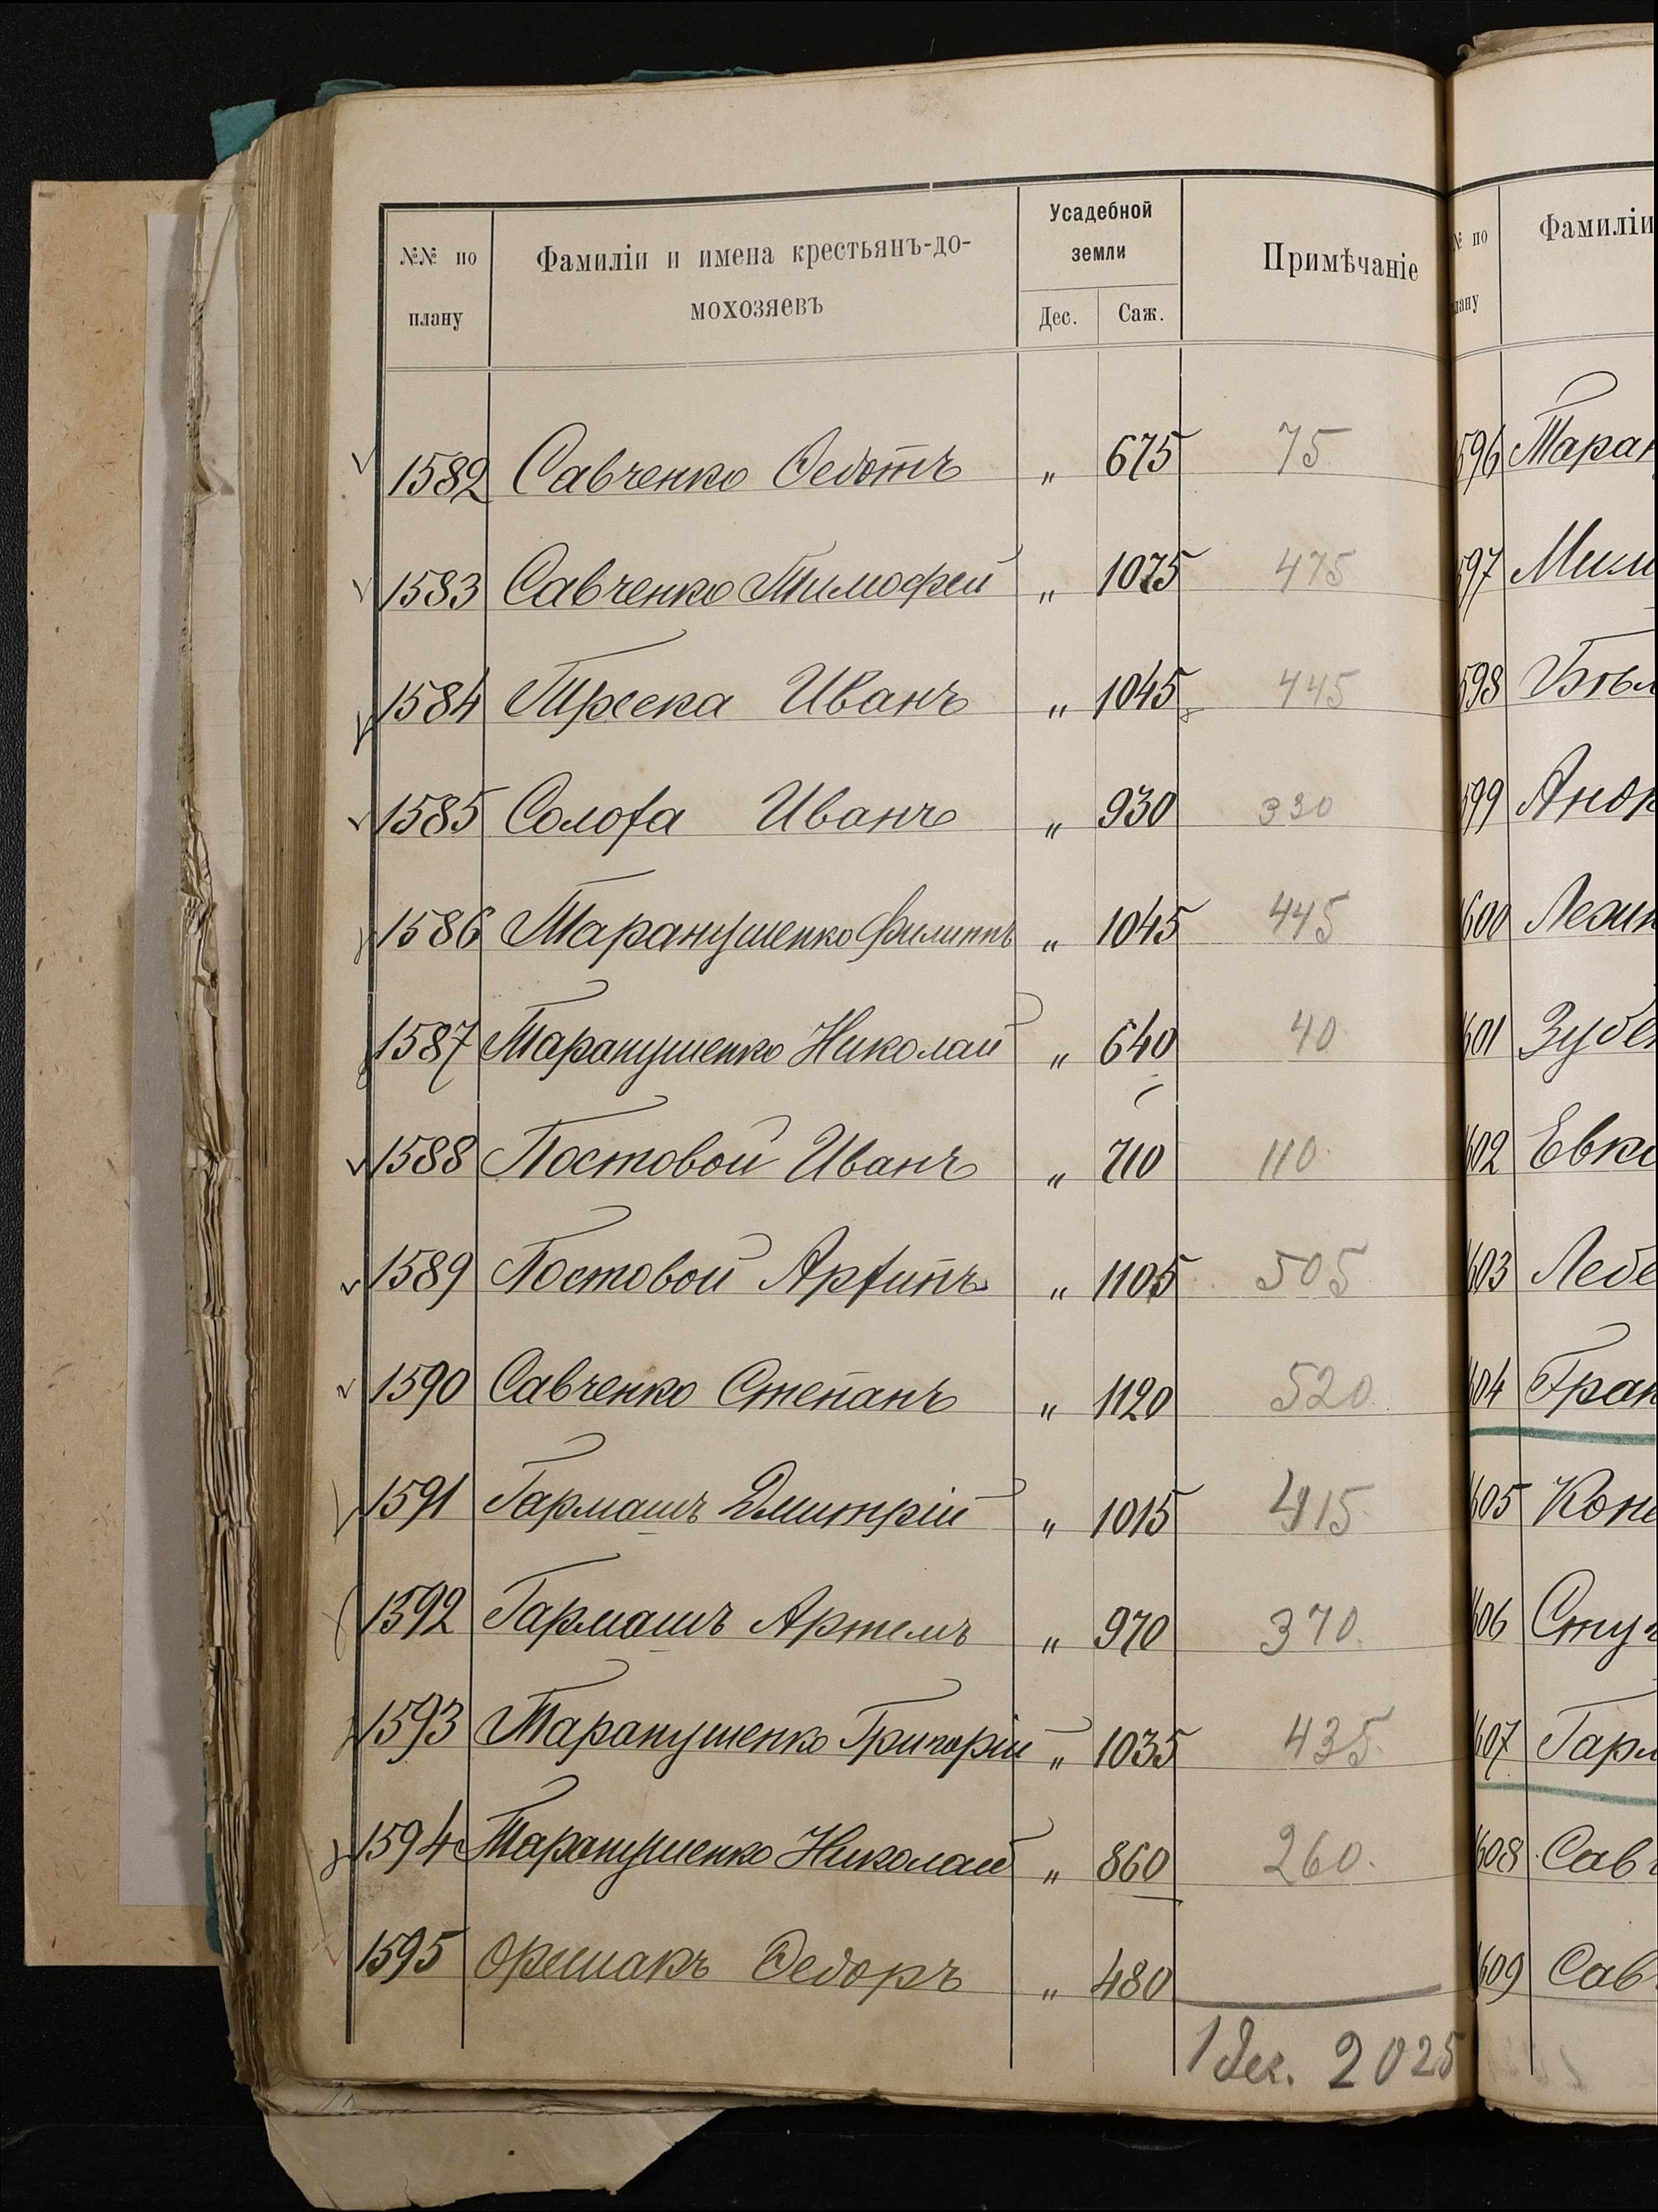 №№ по плану Фамиліи и имена крестьянъ-до-мохозяевъ Усадебной земли Дес. Саж. Примѣчаніе
1582 Савченко Ѳедотъ " 675 75
1583 Савченко Тимофей " 1075 475
1584 Иванъ " 1045 445
1585 Солоха Иванъ " 930 330
1586 Таранушенко Филиппъ " 1045 445
1587 Таранушенко Николай " 640 40
1588 Постовой Иванъ " 710 110
1589 Постовой Архипъ " 1105 505
1590 Савченко Степанъ " 1120 520
1591 Гармашъ Дмитрій " 1015 415
1592 Гармашъ Артемъ " 970 370
1593 Таранушенко Григорій " 1035 435
1594 Таранушенко Николай " 860 260
1595 Орешакъ Ѳедоръ " 480
1 Дес. 2025
№ по плану Фамиліи
596 Таран
597
598 Бѣл
599 Анд
600
601 Зубе
602 Евк
603 Лебе
604
605 Коно
606
607 Гарм
608 Сав
609 Сав